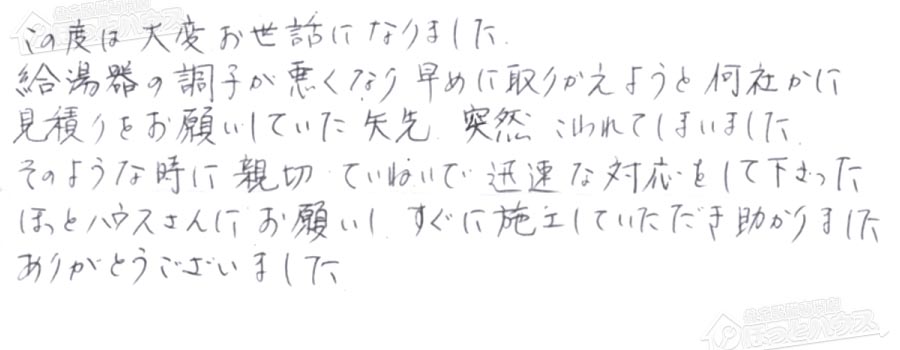 この度は大変お世話になりました
給湯器の調子が悪くなり早めに取りかえようと何社かに
見積りをお願いしていた矢先 突然 こわれてしまいました
そのような時に 親切 ていねいで 迅速な対応をして下さった
ほっとハウスさんに お願いし すぐに施工していただき助かりました
ありがとうございました
ほっとハウス